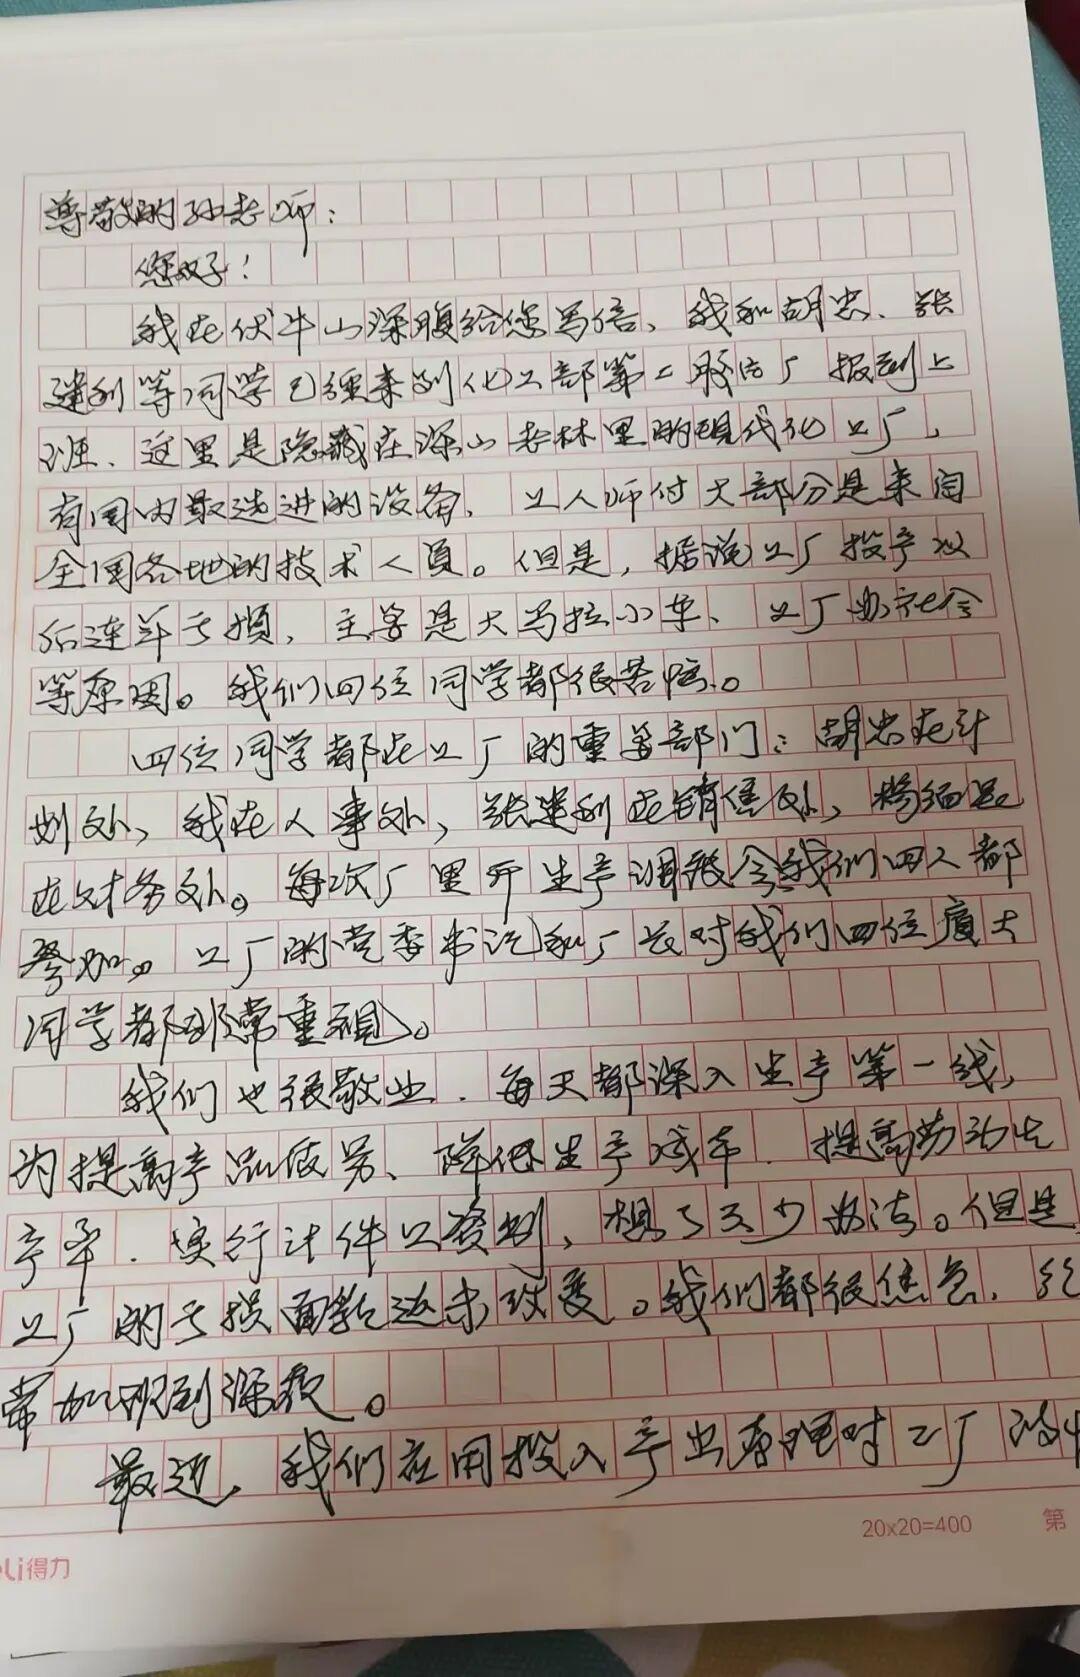 尊敬的孙老师：
您好！
我在伏牛山深腹给您写信、我和胡忠、张
建利等同学已经来到化工部第二胶片厂报到上
班、这里是隐藏在深山老林里的现代化工厂，
有国内最先进的设备、工人师付大部分是来自
全国各地的技术人员。但是，据说工厂投产以
后连年亏损、主要是大马拉小车、工厂办社会
等原因。我们四位同学都很苦恼。
四位同学都在工厂的重要部门：胡忠在计
划处，我在人事处，张建利在销售处，杨
在财务处。每次厂里开生产调度会我们四人都
参加。工厂的党委书记和厂长对我们四位厦大
同学都非常重视。
我们也很敬业．每天都深入生产第一线，
为提高产品质量、降低生产成本．提高劳动生
产率．实行计件工资制，想了不少办法。但是
工厂的亏损面貌还未改变。我们都很焦急．经
常加班到深夜。
最近，我们应用投入产出原理对工厂
20x20=400
第
得力